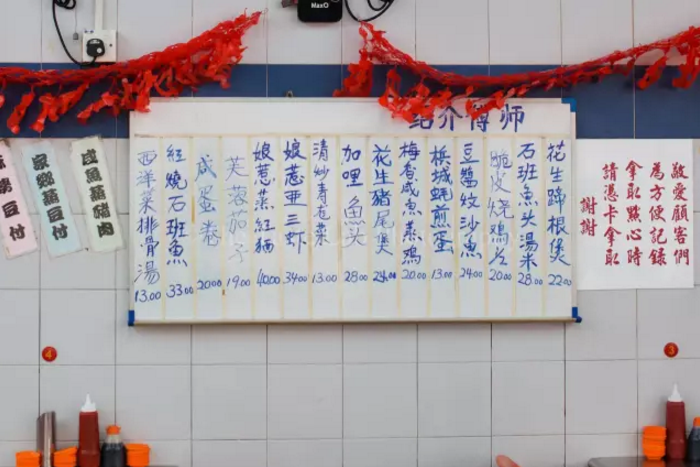 MaxO
绍介傅师
花生蹄根煲
22.00
石班魚头湯米
28.00
脆皮烧鸡
20.00
豆醬蚊沙魚
24.00
槟城蚝煎蛋
13.00
梅香咸魚蒸鸡
20.00
花生豬尾煲
加哩魚头
28.00
清炒青卷菜
13.00
娘惹亚三虾
34.00
娘惹蒸紅貓
40.00
芙蓉茄子
19.00
咸蛋卷
20.00
紅燒石班魚
33.00
西洋菜排骨湯
13.00
敬愛顧客們
為方便記錄
拿取點心時
請憑卡拿取
謝謝
咸魚蒸豬肉
家鄉蒸豆付
豆付
4
3